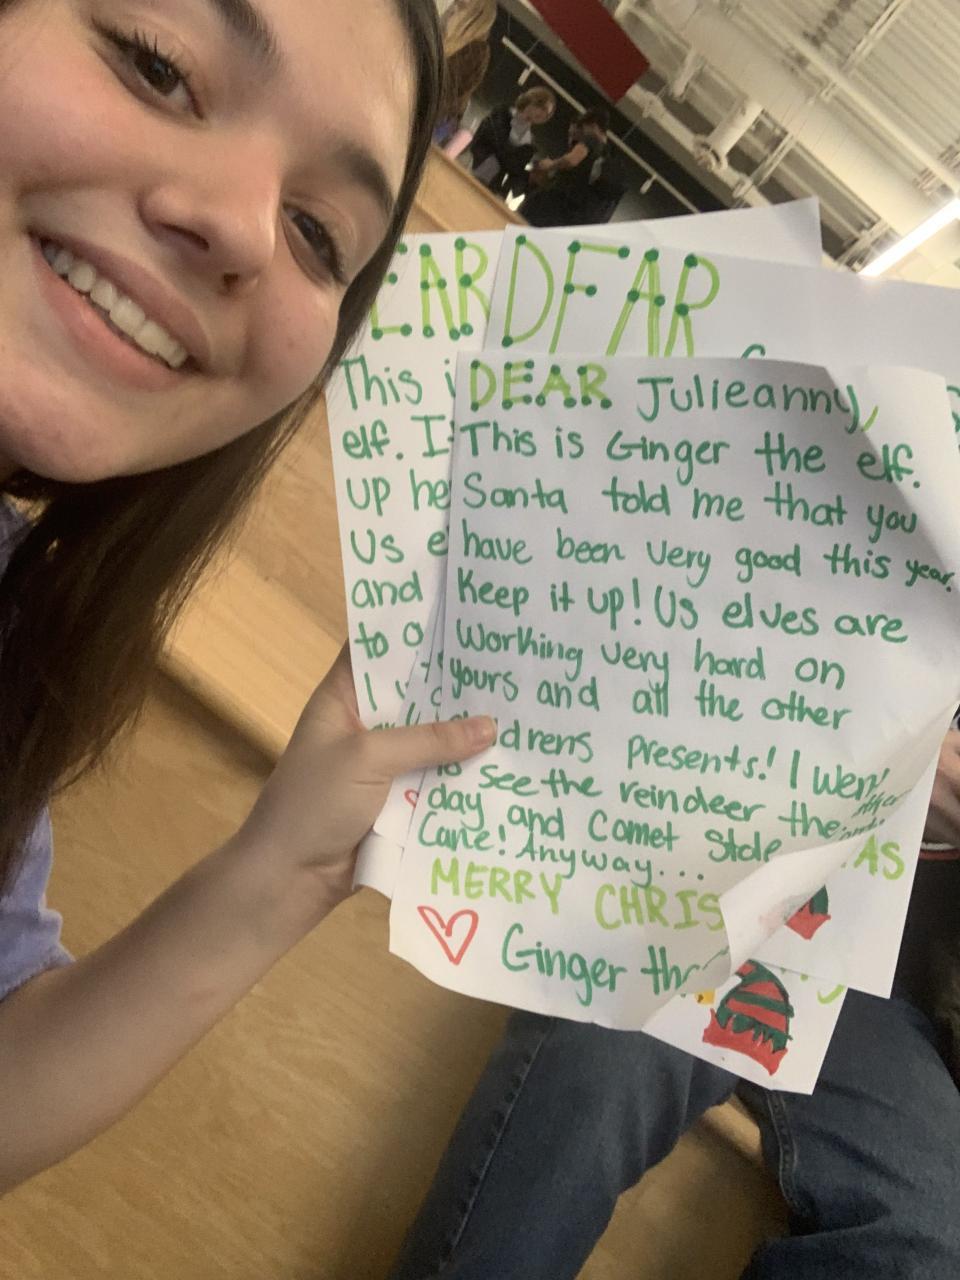 DEAR Julieanny,
This is Ginger the elf.
Santa told me that you
have been very good this year.
Keep it up! Us elves are
working very hard on
yours and all the other
drens presents! I wen
to see the reindeer the other
day and Comet Stole
Cane! Anyway...
MERRY CHRIS
Ginger the
EAR
This i
elf. I
up he
Us e
and
to a
I
DEAR
AS